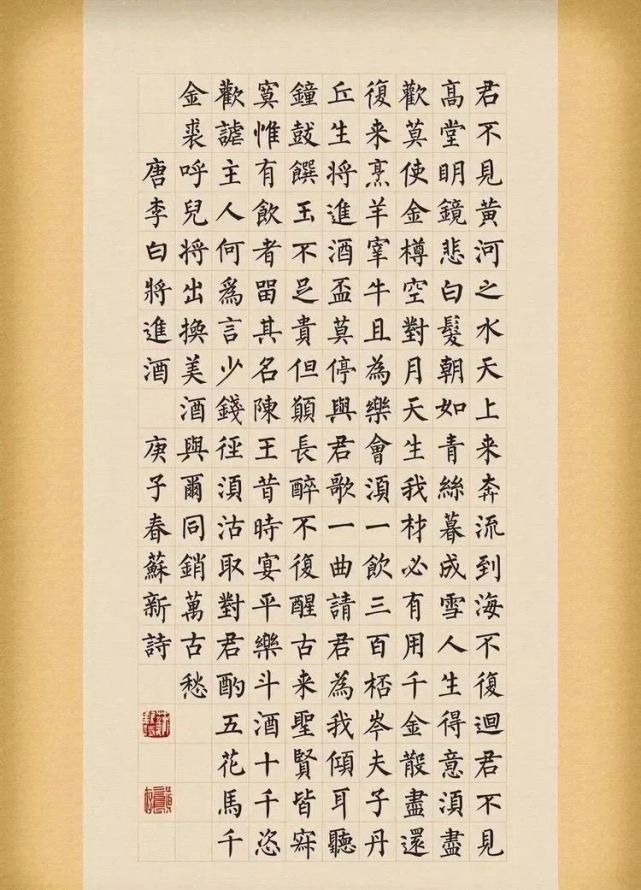 君不見黃河之水天上来奔流到海不復迴君不見
髙堂明鏡悲白髮朝如青絲暮成雪人生得意須盡
歡莫使金樽空對月天生我材必有用千金散盡還
復来烹羊宰牛且為樂會須一飲三百桮岑夫子丹
丘生將進酒盃莫停與君歌一曲請君為我傾耳聽
鐘鼔饌玉不足貴但願長醉不復醒古来聖賢皆寂
寞惟有飲者留其名陳王昔時宴平樂斗酒十千恣
歡謔主人何爲言少錢徑須沽取對君酌五花馬千
金裘呼兒將出換美酒與爾同銷萬古愁
唐李白將進酒 庚子春蘇新詩